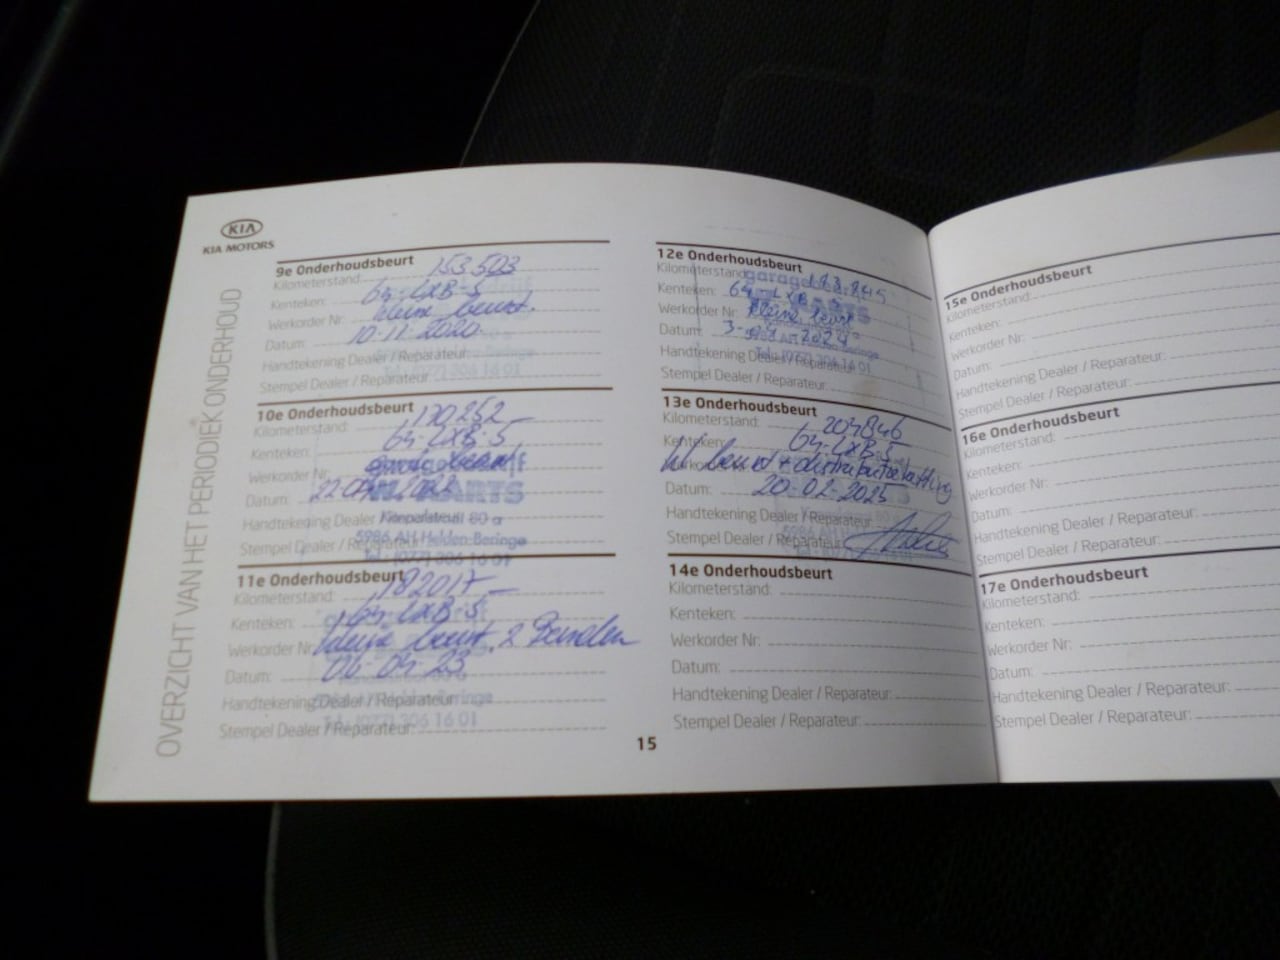 KIA
KIA MOTORS
OVERZICHT VAN HET PERIODIEK ONDERHOUD
9e Onderhoudsbeurt
Kilometerstand: 153 503
Kenteken: 64-LXB-5
Werkorder Nr: kleine beurt.
Datum: 10-11-2020
Handtekening Dealer / Reparateur:
Stempel Dealer / Reparateur:
Tel. (077) 306 16 01
10e Onderhoudsbeurt
Kilometerstand: 170 252
Kenteken: 64-LXB-5
Werkorder Nr:
Datum: 22
Handtekening Dealer / Reparateur: 80 a
5986 AH Helden-Beringe
Stempel Dealer / Reparateur:
Tel. (077) 306 16 01
11e Onderhoudsbeurt
Kilometerstand: 182017
Kenteken: 64-LXB-5
Werkorder Nr: kleine beurt. 2 Banden
Datum: 06-04-23
Handtekening Dealer / Reparateur:
Stempel Dealer / Reparateur:
Tel. (077) 306 16 01
12e Onderhoudsbeurt
Kilometerstand:
Kenteken: 64-LXB-5
Werkorder Nr: kleine beurt
Datum:
5986 AH Helden-Beringe
Handtekening Dealer / Reparateur:
Tel. (077) 306 16 01
Stempel Dealer / Reparateur:
13e Onderhoudsbeurt
Kilometerstand: 204846
Kenteken: 64-LXB-5
Werkorder Nr: kl beurt + distributieketting
Datum: 20-02-2025
Handtekening Dealer / Reparateur:
Stempel Dealer / Reparateur:
14e Onderhoudsbeurt
Kilometerstand:
Kenteken:
Werkorder Nr:
Datum:
Handtekening Dealer / Reparateur:
Stempel Dealer / Reparateur:
15
15e Onderhoudsbeurt
Kilometerstand:
Kenteken:
Werkorder Nr:
Datum:
Handtekening Dealer / Reparateur:
Stempel Dealer / Reparateur:
16e Onderhoudsbeurt
Kilometerstand:
Kenteken:
Werkorder Nr:
Datum:
Handtekening Dealer / Reparateur:
Stempel Dealer / Reparateur:
17e Onderhoudsbeurt
Kilometerstand:
Kenteken:
Werkorder Nr:
Datum:
Handtekening Dealer / Reparateur:
Stempel Dealer / Reparateur: